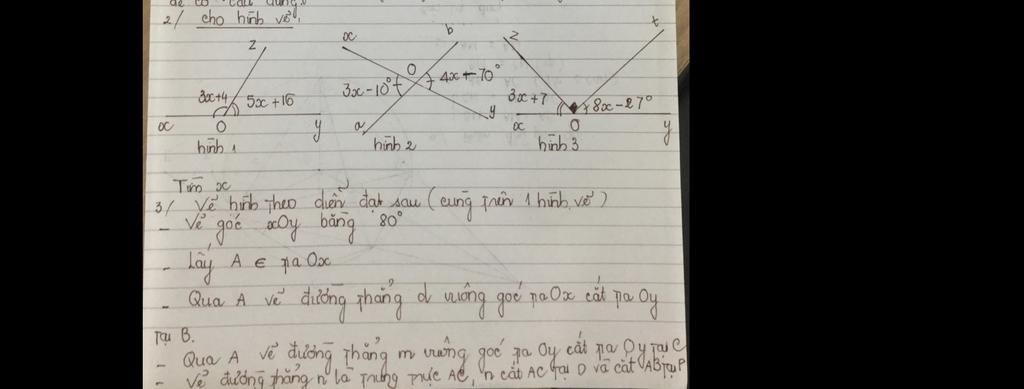 để có câu đúng.
2/ cho hình vẽ,
z
3x+4
5x+16
x
O
y
hình 1
x
b
O
3x-10°
4x-70°
a
y
hình 2
z
t
3x+7
8x-27°
x
O
y
hình 3
Tìm x
3/ Vẽ hình theo diễn đạt sau (cùng trên 1 hình vẽ)
- Vẽ góc xOy bằng 80°
- Lấy A ∈ tia Ox
- Qua A vẽ đường thẳng d vuông góc tia Ox cắt tia Oy
tại B.
- Qua A vẽ đường thẳng m vuông góc tia Oy cắt tia Oy tại C
- Vẽ đường thẳng n là trung trực AC, n cắt AC tại D và cắt AB tại P